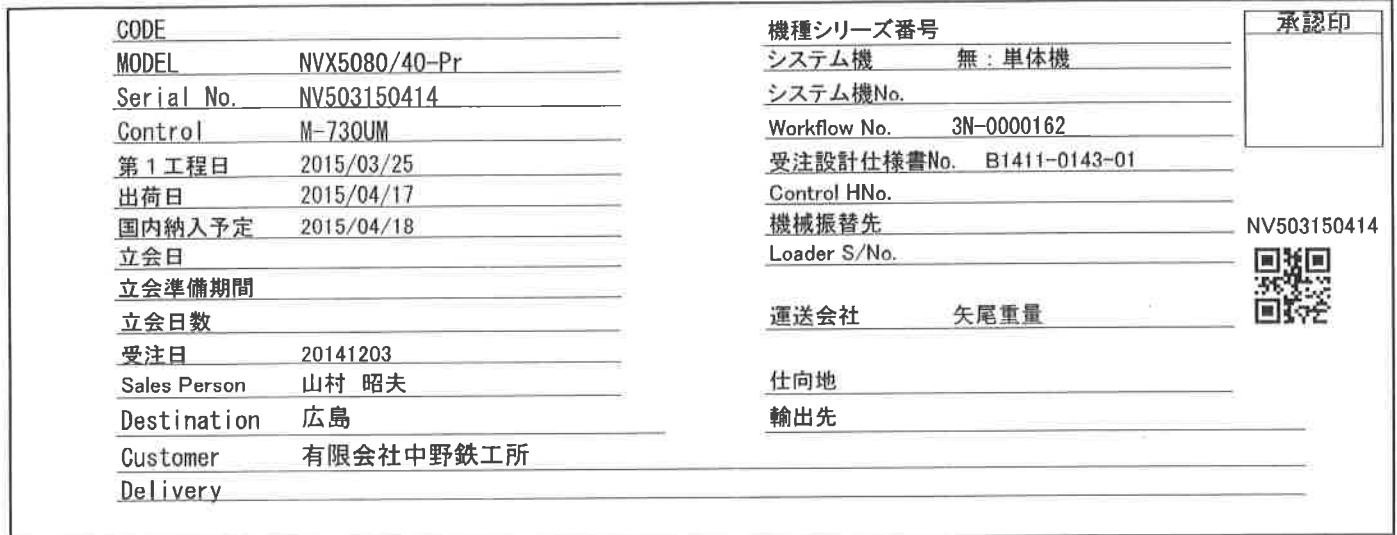 CODE
MODEL NVX5080/40-Pr
Serial No. NV503150414
Control M-730UM
第1工程日 2015/03/25
出荷日 2015/04/17
国内納入予定 2015/04/18
立会日
立会準備期間
立会日数
受注日 20141203
Sales Person 山村 昭夫
Destination 広島
Customer 有限会社中野鉄工所
Delivery
機種シリーズ番号
システム機 無:単体機
システム機No.
Workflow No. 3N-0000162
受注設計仕様書No. B1411-0143-01
Control HNo.
機械振替先
Loader S/No.
運送会社 矢尾重量
仕向地
輸出先
承認印
NV503150414